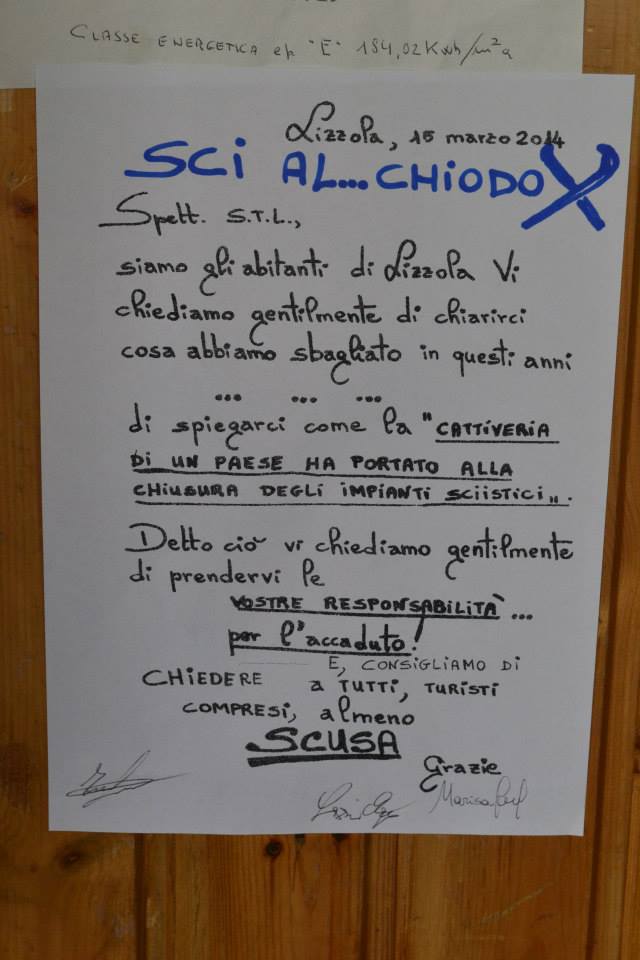 CLASSE ENERGETICA ep "E" 184,02 Kwh/m²a
Lizzola, 15 marzo 2014
SCI AL... CHIODO X
Spett. S.T.L.,
siamo gli abitanti di Lizzola Vi
chiediamo gentilmente di chiarirci
cosa abbiamo sbagliato in questi anni
... ... ...
di spiegarci come la "CATTIVERIA
DI UN PAESE HA PORTATO ALLA
CHIUSURA DEGLI IMPIANTI SCIISTICI".
Detto ciò vi chiediamo gentilmente
di prendervi le
VOSTRE RESPONSABILITÀ...
per l'accaduto!
E, CONSIGLIAMO DI
CHIEDERE a TUTTI, TURISTI
COMPRESI, almeno
SCUSA
Grazie
Marisa